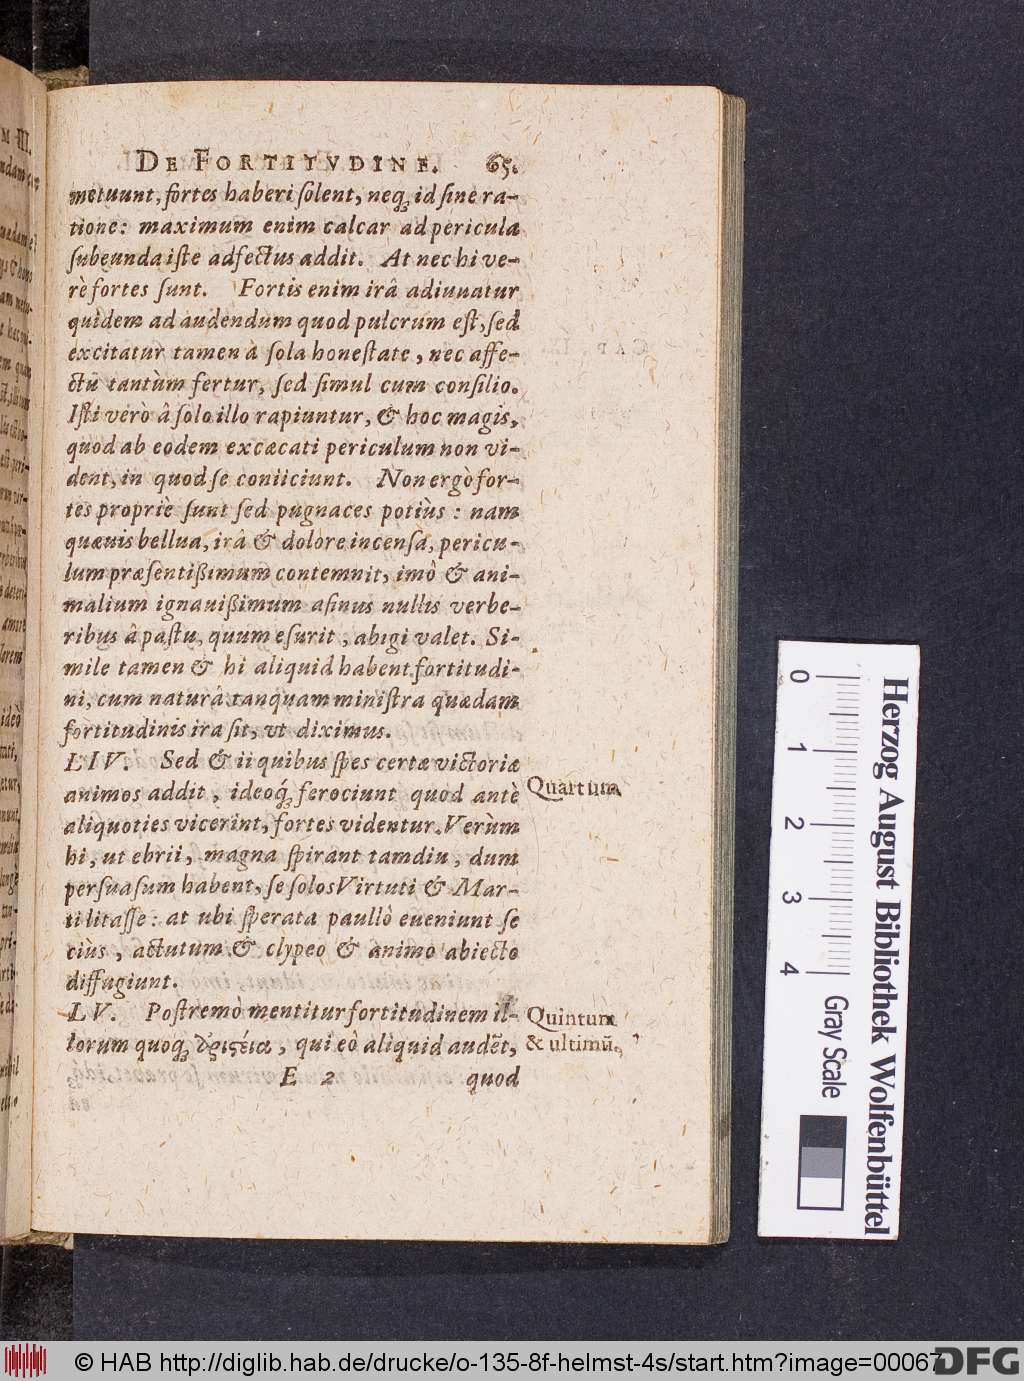 DE FORTITVDINE. 65.
metuunt, fortes haberi ſolent, neq; id ſine ra-
tione: maximum enim calcar ad pericula
ſubeunda iſte adfectus addit. At nec hi ve-
rè fortes ſunt. Fortis enim irâ adiuuatur
quidem ad audendum quod pulcrum eſt, ſed
excitatur tamen à ſola honeſtate, nec affe-
ctu tantùm fertur, ſed ſimul cum conſilio.
Iſti verò â ſolo illo rapiuntur, & hoc magis,
quod ab eodem excæcati periculum non vi-
dent, in quod ſe coniiciunt. Non ergò for-
tes propriè ſunt ſed pugnaces potiùs: nam
quæuis bellua, irâ & dolore incenſa, pericu-
lum præſentißimum contemnit, imò & ani-
malium ignauißimum aſinus nullis verbe-
ribus â paſtu, quum eſurit, abigi valet. Si-
mile tamen & hi aliquid habent fortitudi-
ni, cum naturâ tanquam miniſtra quædam
fortitudinis ira ſit, vt diximus.
LIV. Sed & ii quibus ſpes certæ victoriæ
animos addit, ideoq́; ferociunt quod antè
aliquoties vicerint, fortes videntur. Verùm
hi, ut ebrii, magna ſpirant tamdiu, dum
perſuaſum habent, ſe ſolos Virtuti & Mar-
ti litaſſe: at ubi ſperata paullò eueniunt ſe
ciùs, actutum & clypeo & animo abiecto
diffugiunt.
LV. Poſtremò mentitur fortitudinem il-
lorum quoq;, qui eò aliquid audẽt,
E 2 quod
Quartum
Quintum
& ultimũ.
Herzog August Bibliothek Wolfenbüttel
0 1 2 3 4
Gray Scale
© HAB http://diglib.hab.de/drucke/o-135-8f-helmst-4s/start.htm?image=00067
DFG